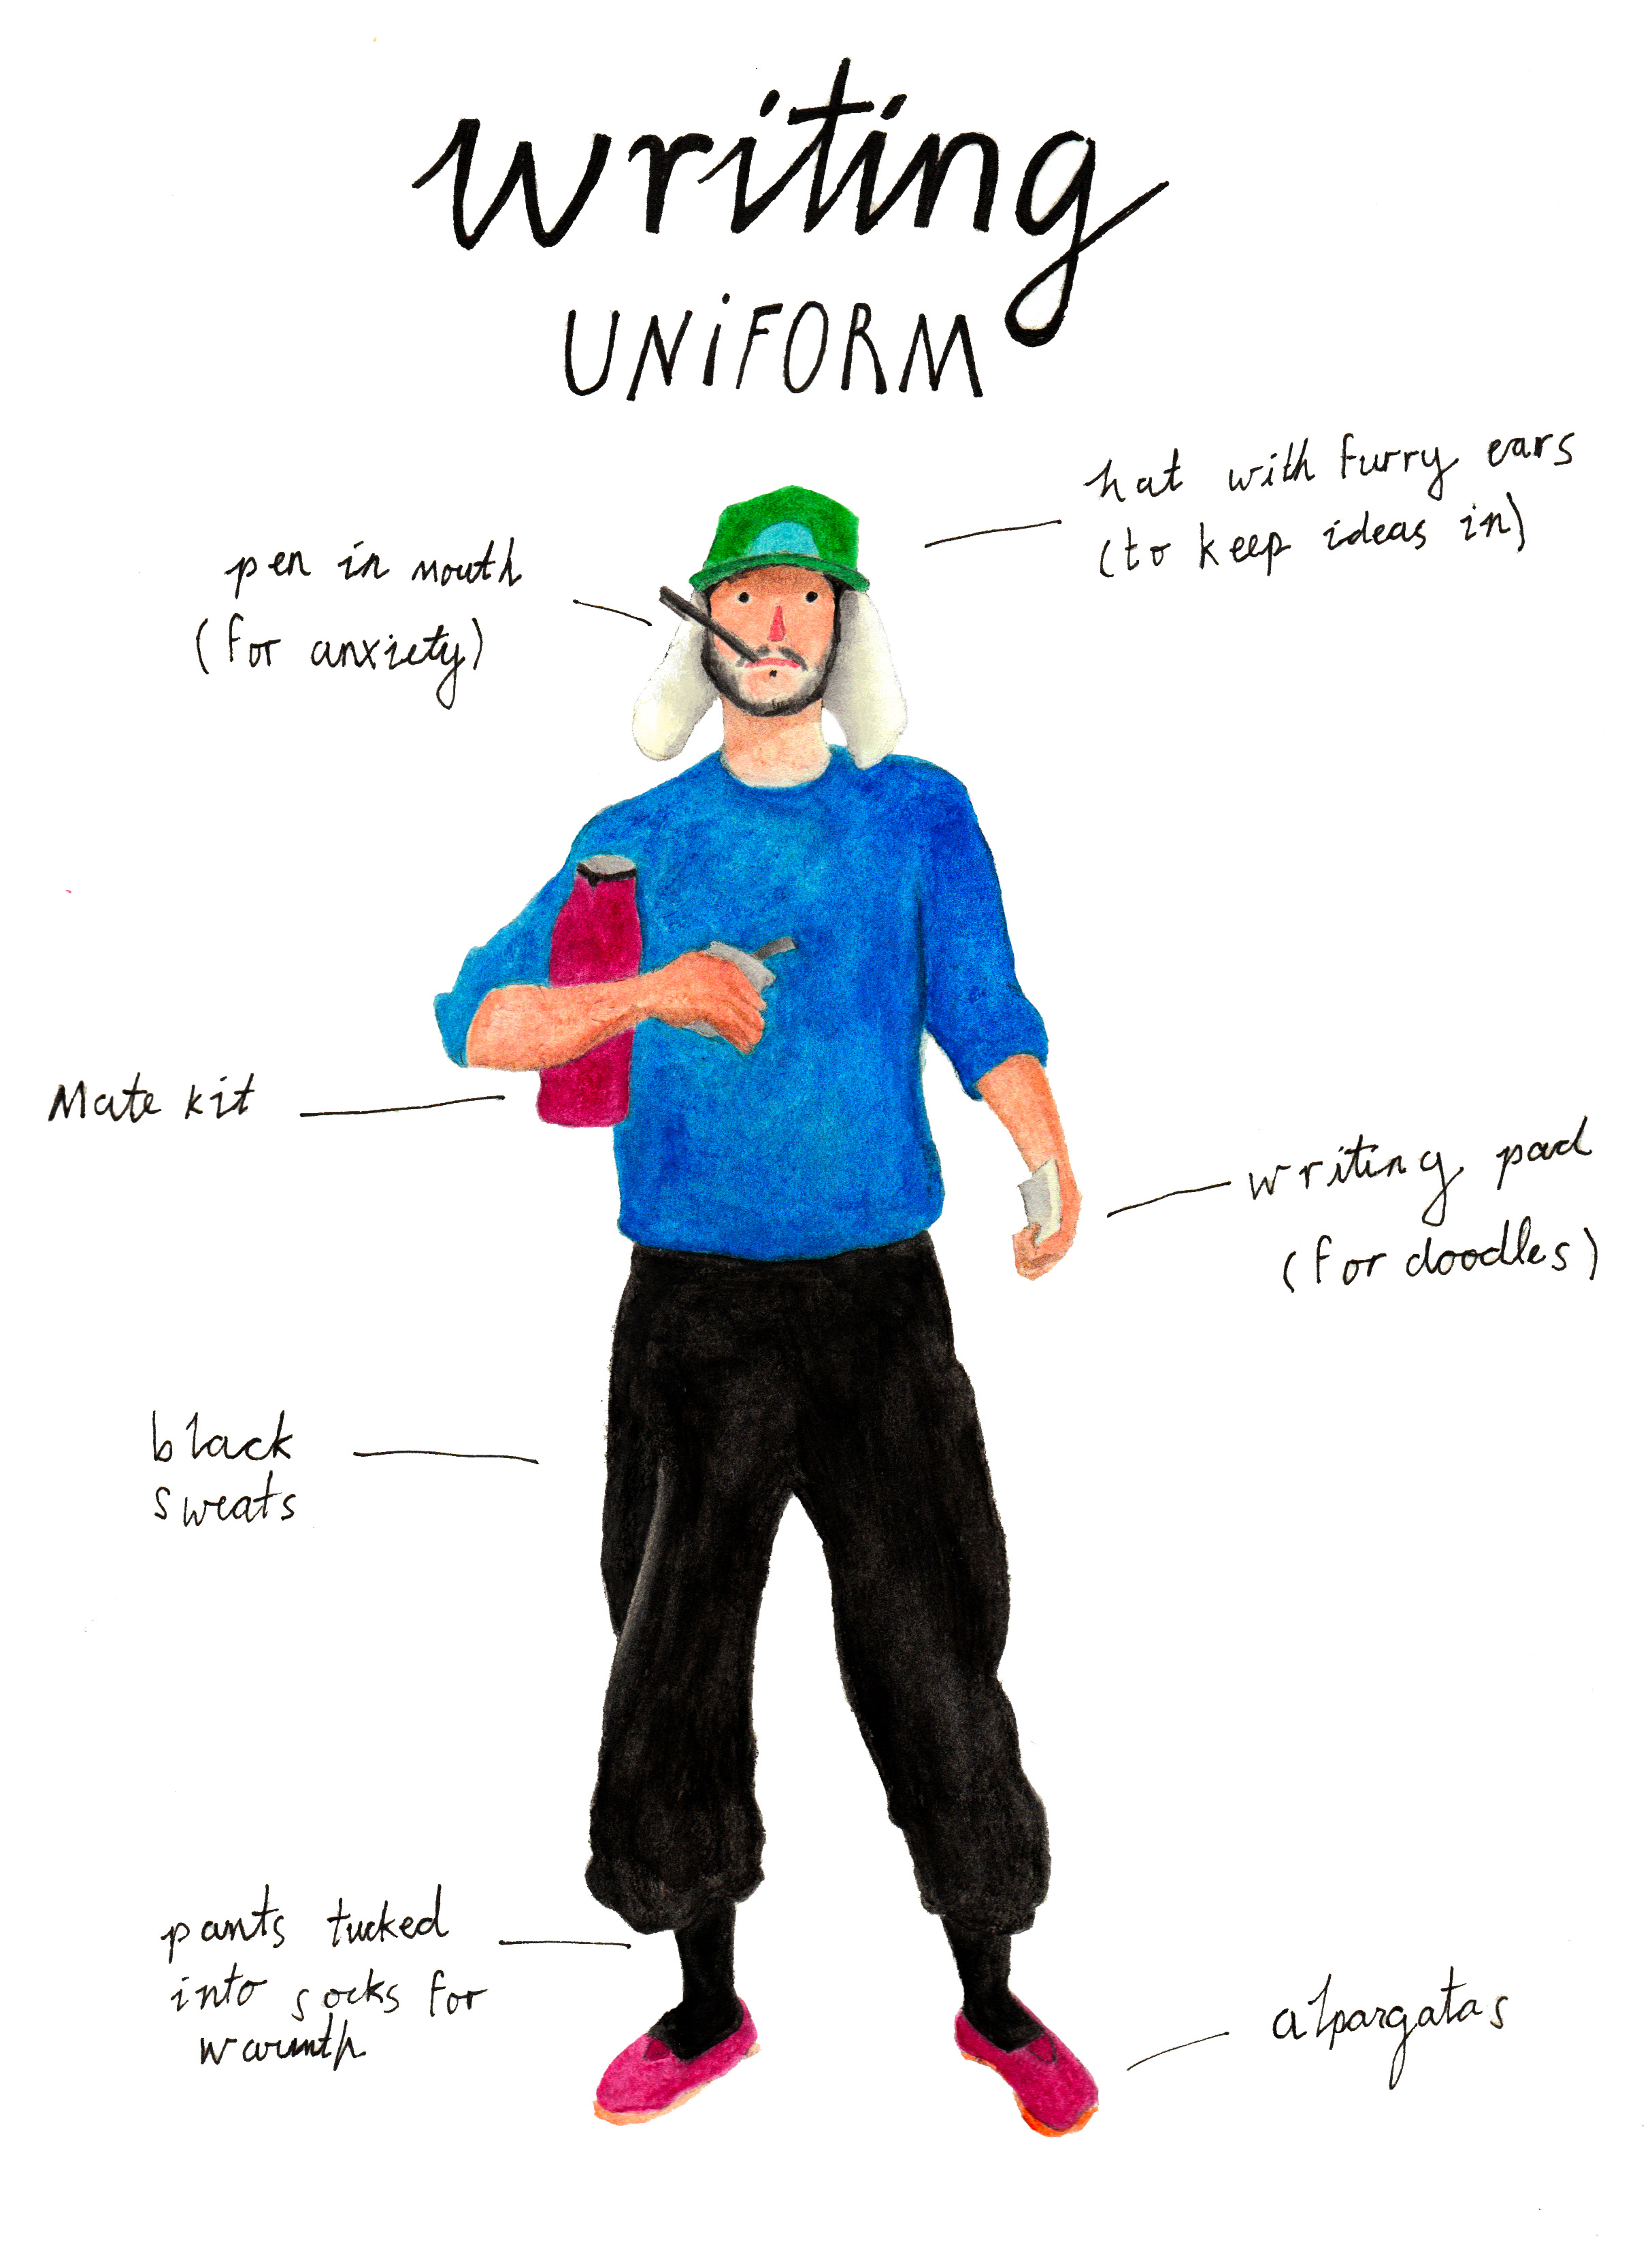 writing
UNiFORM
hat with furry ears
(to keep ideas in)
pen in mouth
(for anxiety)
Mate kit
writing pad
(for doodles)
black
sweats
pants tucked
into socks for
warmth
alpargatas